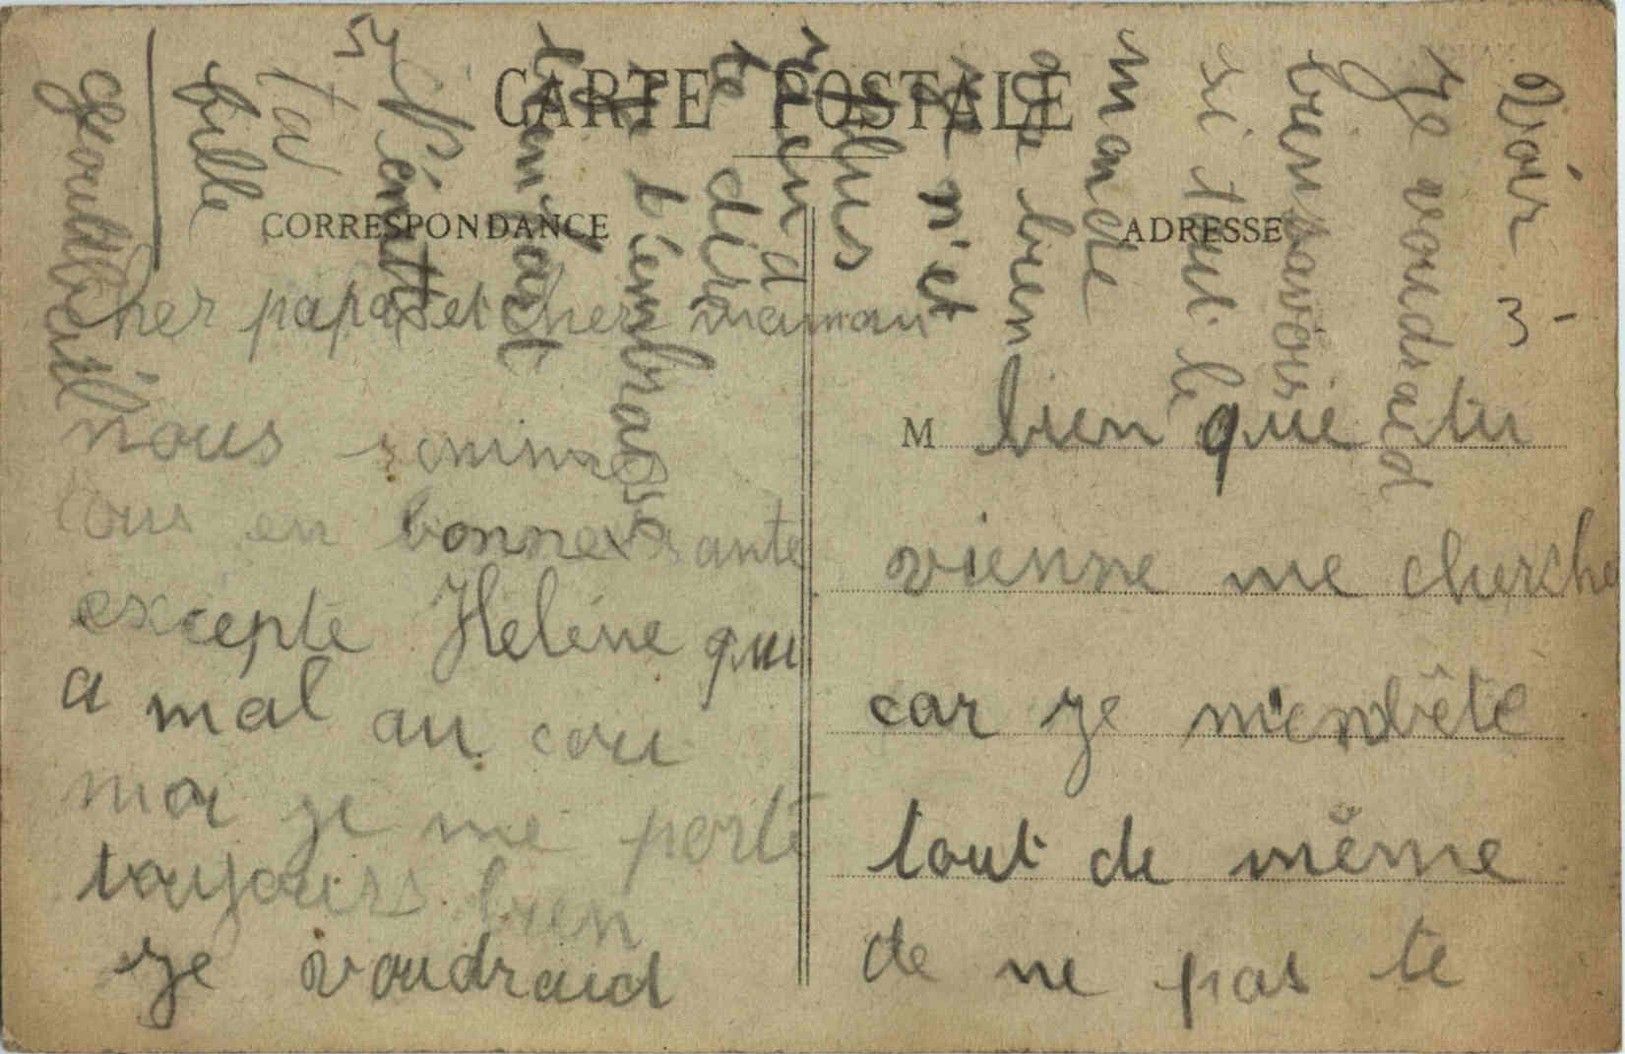 CARTE POSTALE
CORRESPONDANCE
ADRESSE
Cher papa et chere maman
nous sommes
tous en bonne sante
excepte Helene qui
a mal au cou
moi je me porte
toujours bien
je voudraid
M bien que tu
vienne me cherche
car je m'enbête
tout de même
de ne pas te
Voir 3 -
Je voudraid
bien savoir
si tout le
monde
bien
je n'et
plus
rien
te dire
je t'embrasse
ta
fille